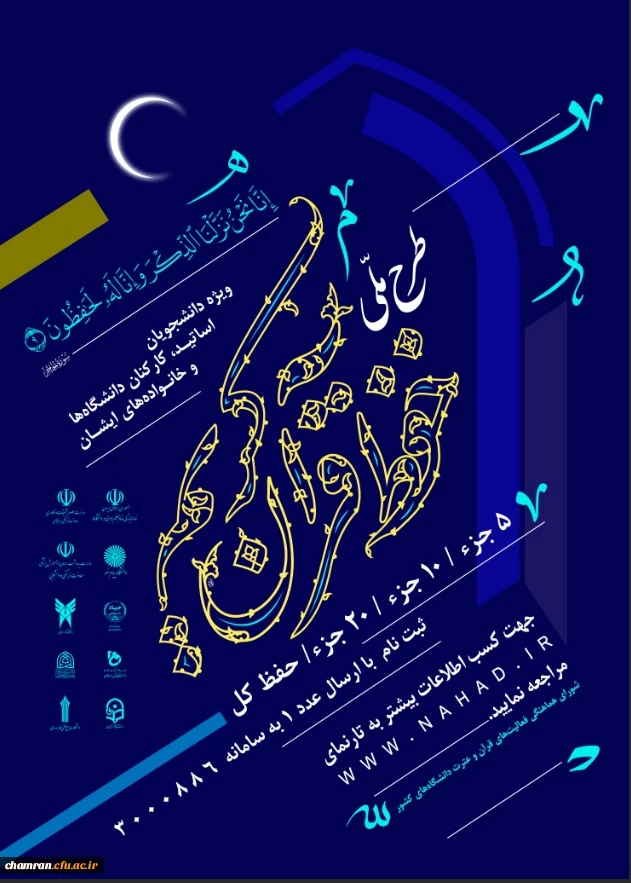 إِنَّا نَحْنُ نَزَّلْنَا الذِّكْرَ وَإِنَّا لَهُ لَحَافِظُونَ
۹
ویژه دانشجویان
اساتید، کارکنان دانشگاه‌ها
و خانواده‌های ایشان
طرح ملّی
حفظ قرآن کریم
۵ جزء / ۱۰ جزء / ۲۰ جزء / حفظ کل
ثبت نام با ارسال عدد ۱ به سامانه ۳۰۰۰۸۸۶
جهت کسب اطلاعات بیشتر به تارنمای
WWW.NAHAD.IR
مراجعه نمایید.
شورای هماهنگی فعالیت‌های قرآن و عترت دانشگاه‌های کشور
chamran.cfu.ac.ir